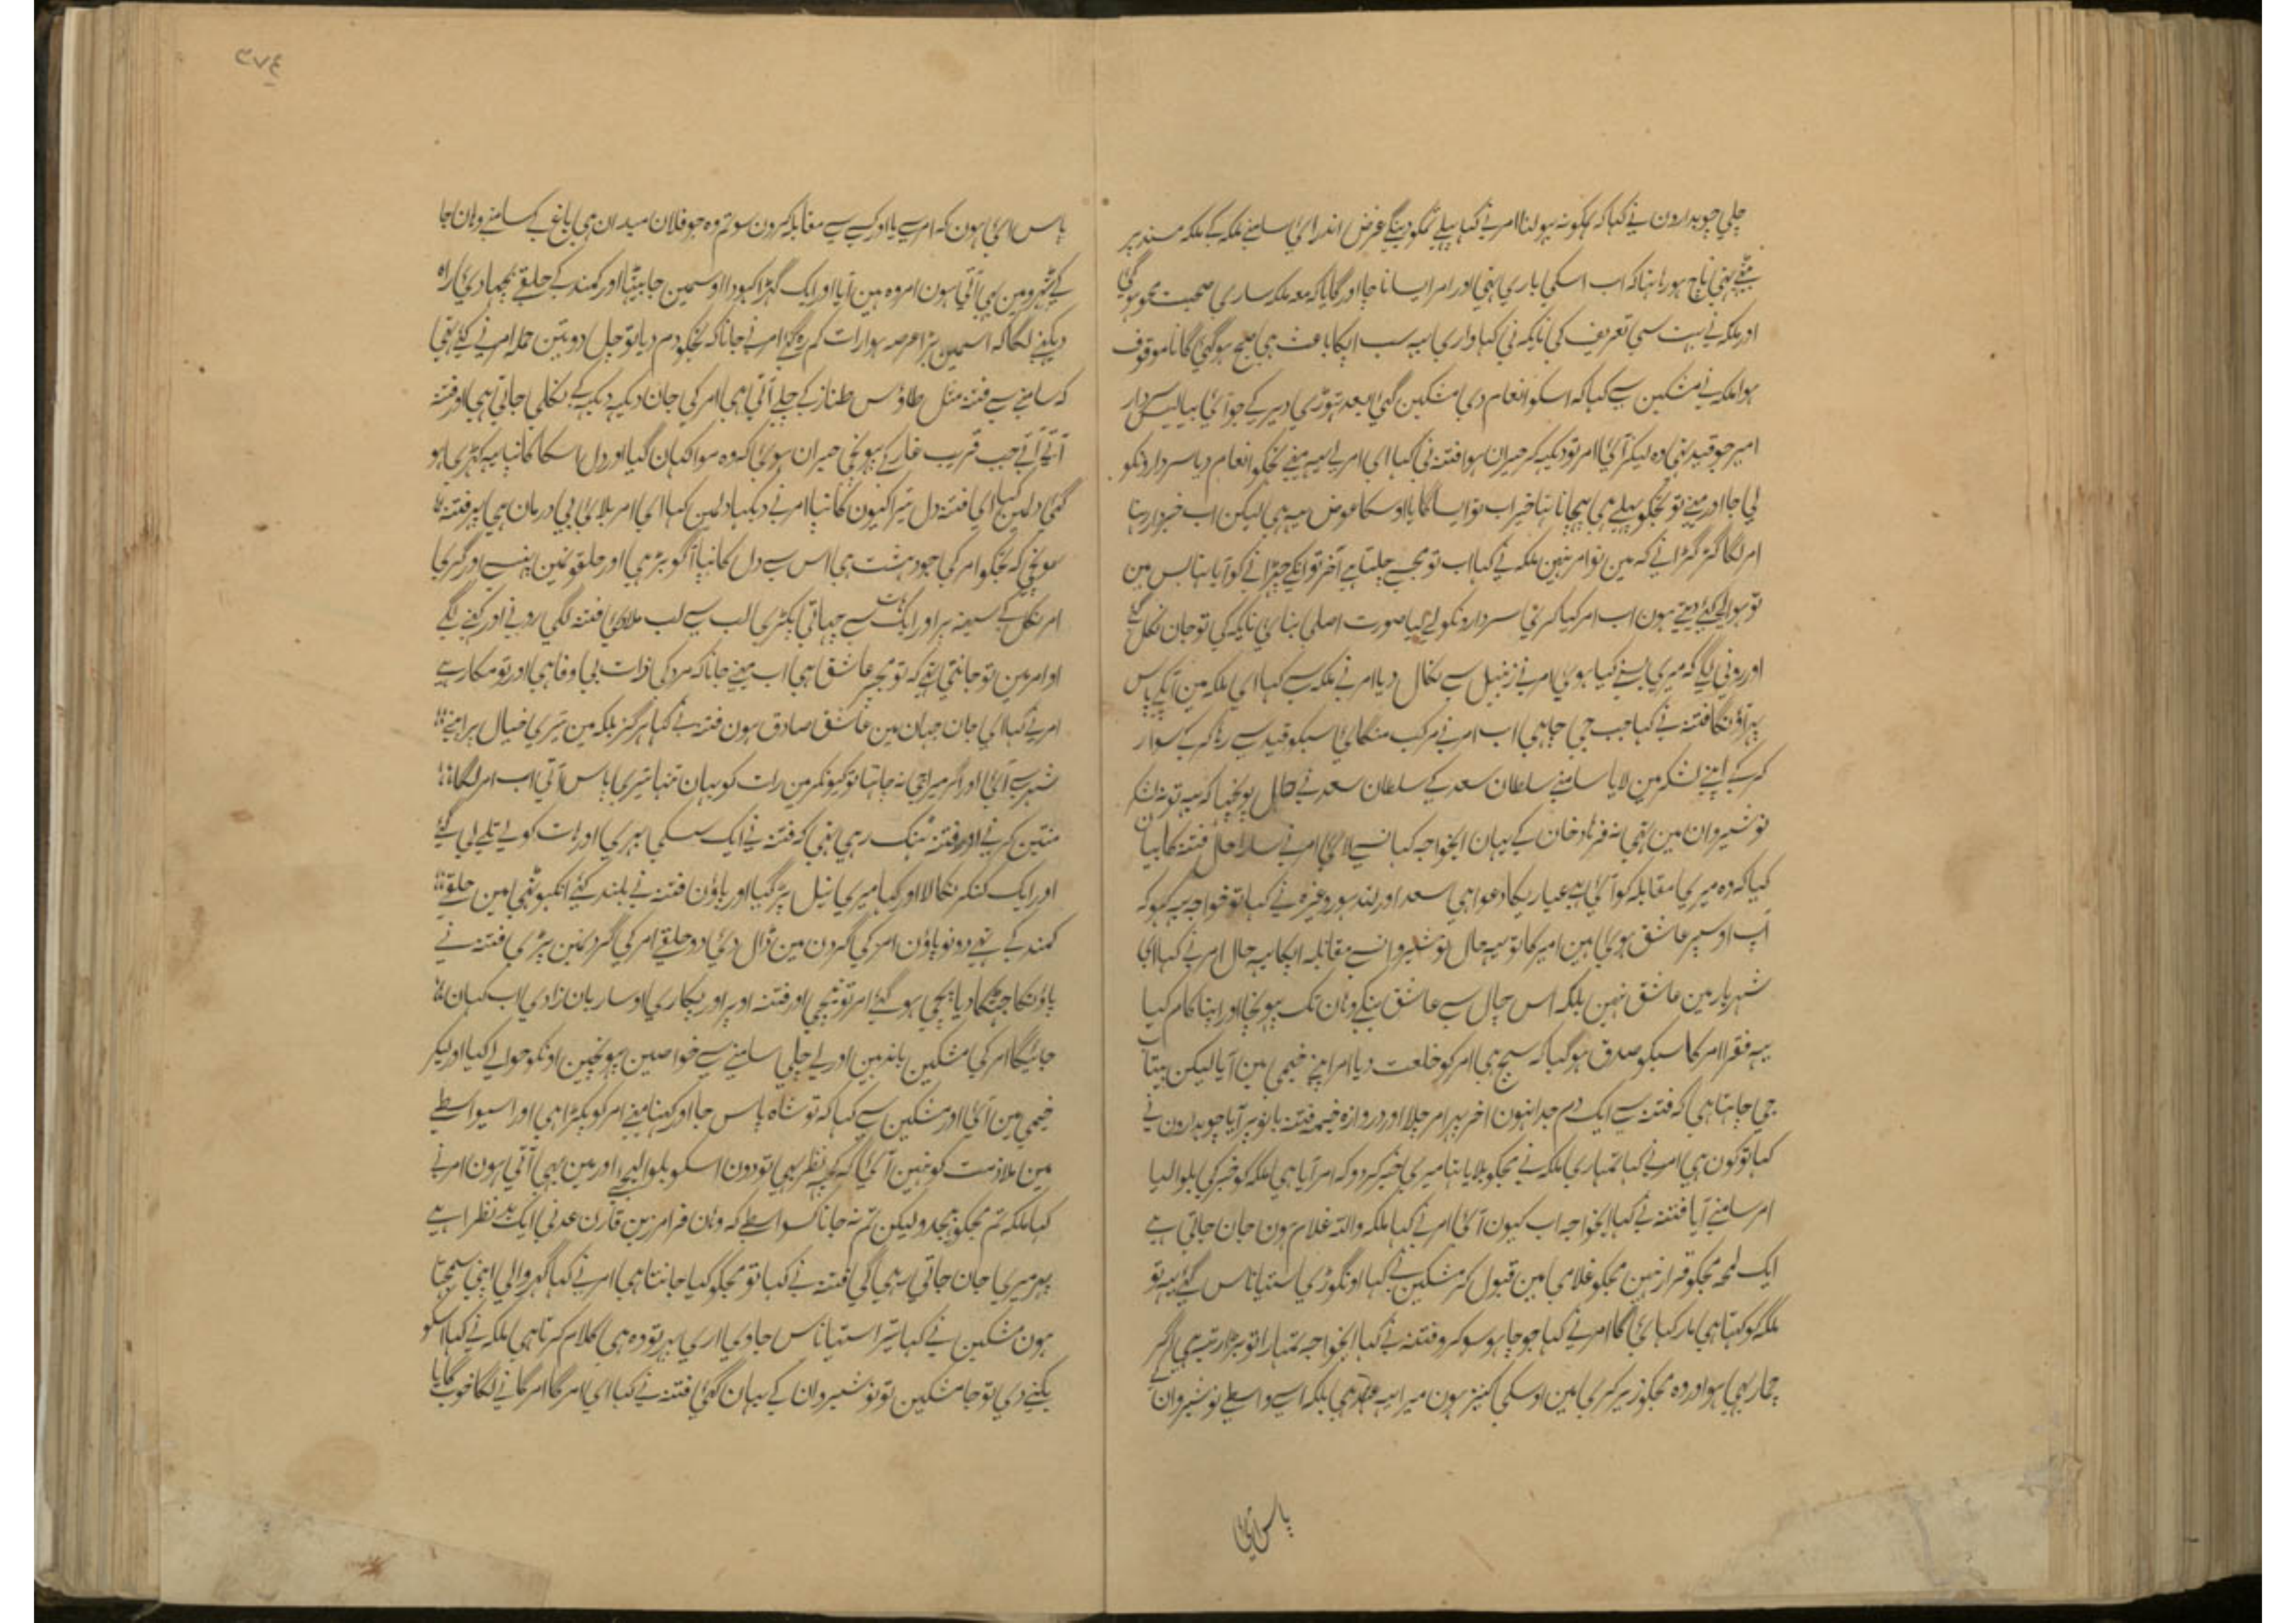 چلی چوبدارون نے کہا کہ ہمکو نہ بہولنا امر نے کہا پہلے تمکو دینگے غرض اندر آئی سامنے ملکہ کے ملکہ مسند پر
ناچ ہو رہا تہا کہ اب اسکی باری تہی اور امر ایسا ناچا اور گایا کہ معہ ملکہ ساری صحبت محو ہو گئی
اور ملکہ نے بہت سی تعریف کی نایکہ نی کہا واری یہ سب آپکا باعث ہی صبح ہو گئی گانا موقوف
ہوا ملکہ نے مشکین سے کہا کہ اسکو انعام دی مشکین گئی بعد تہوڑی دیر کے جو آئی بیالیس سردار
امیر جو قید تہی وہ لیکر آئی امر تو دیکہہ کر حیران ہوا فتنہ نی کہا ای امر لے یہ مینے تجکو انعام دیا سردارونکو
لی جا اور مینے تو تجکو پہلے ہی پہچانا تہا خیر اب تو ایسا گایا اوسکا عوض یہ ہی لیکن اب خبردار رہنا
امر لگا گڑگڑانے کہ مین تو امر نہین ملکہ نے کہا اب تو مجسے چلتا ہے آخر تو انکے چہڑانے کو آیا تہا بس مین
تو حوالے کئے دیتے ہون اب امر کیا کرتا سردارونکو لے لیا صورت اصلی بنائی نایکہ کی تو جان نکل گئے
اور رونی لگے کہ میری کیا ہوئی امر نے زنبیل سے نکال دیا امر نے ملکہ سے کہا ای ملکہ مین آپکے پاس
پہر آؤنگا فتنہ نے کہا جب جی چاہی اب امر نے مرکب منگائی سبکو قید سے رہا کر کے سوار
کر کے اپنے لشکر مین لایا سامنے سلطان سعد کے سلطان سعد نے حال پوچہا کہ یہ تو نہ لشکر
نوشیروان مین تہی نہ فرہاد خان کے یہان ایخواجہ کہانسے لائی امر نے سارا حال فتنہ کا بیان
کیا کہ وہ میری مقابلہ کو آئی ہے عیاریکا دعوا ہی سعد اور لندہور وغیرہ نے کہا تو خواجہ یہ کہو کہ
آپ اوسپر عاشق ہوئی ہین امیر کا تو یہ حال نوشیروانسے مقابلہ آپکا یہ حال امر نے کہا ای
شہریار مین عاشق نہین بلکہ اس چال سے عاشق بنکے وہان تک پہونچا اور اپنا کام کیا
یہ فقرا امر کا سبکو صدق ہو گیا کہ سچ ہی امر کو خلعت دیا امر اپنے خیمی مین آیا لیکن بیتاب
جی چاہتا ہی کہ فتنہ سے ایک دم جدا نہون آخر پہر امر چلا اور دروازہ خیمہ فتنہ بانو پر آیا چوبدارون نے
کہا تو کون ہی امر نے کہا تمہاری ملکہ نے مجکو بلایا تہا میری خبر کر دو کہ امر آیا ہی ملکہ کو خبر کی بلوا لیا
امر سامنے آیا فتنہ نے کہا ایخواجہ اب کیون آئی امر نے کہا ملکہ واللہ غلام ہون جان جاتی ہے
ایک لمحہ مجکو قرار نہین مجکو غلامی مین قبول کر مشکین نے کہا اونگوڑی ستیاناس گئے یہ تو
ملکہ کو کہتا ہی مار کہائی گا امر نے کہا جو چاہو سو کرو فتنہ نے کہا ایخواجہ تمہارا تو بڑا رتبہ ہی اگر
چمار بہی ہو اور وہ مجکو زیر کری مین اوسکی کنیز ہون میرا یہ عہد ہی بلکہ اسی واسطے نوشیروان
پاس آئی
۳۷۴
پاس آئی ہون کہ امر سے یا اور کسے سے مقابلہ کرون سو تم وہ جو فلان میدان ہی باغ کے سامنے وہان جا
کے ٹہرو مین بہی آتی ہون امر وہ مین آیا اور ایک گہڑا کہودا اوسمین جا بیٹہا اور کمند کے حلقے بچہا دئی راہ
دیکہنے لگا کہ اسمین بڑا عرصہ ہوا رات کم رہ گئے امر نے جانا کہ تجکو دم دیا تو چل دو تین حملہ امر نے کئے تہی
کہ سامنے سے فتنہ مثل طاؤس طناز کے چلے آتی ہی امر کی جان دیکہہ دیکہہ کے نکلی جاتی ہی اور فتنہ
آتے آتے جب قریب غار کے پہونچی حیران ہوئی کہ وہ موا کہان گیا اور دل اسکا کانپا یہ کہڑی ہو
گئی دلمین کہا ای فتنہ دل تیرا کیون کانپا امر نے دیکہا دلمین کہا ای امر بلائی بی درمان ہی پہر فتنہ
سونچی کہ تجکو امر کی جو دہشت ہی اس سے دل کانپا آگو بڑہی اور حلقونمین پہنسے اور گری کا
امر نکل کے سینہ پر اور ایک ہات سے چہاتی پکڑی لب سے لب ملائی فتنہ لگی رونے اور کہنے لگے
او امر مین تو جانتی تہے کہ تو مجہپر عاشق ہی اب مینے جانا کہ مرد کی ذات بی وفا ہی اور تو مکار ہے
امر نے کہا ای جان جہان مین عاشق صادق ہون فتنہ نے کہا ہرگز بلکہ مین تیری خیال پر اپنے
شہر سے آئی اور اگر میرا جی نہ چاہتا تو کیونکر مین رات کو یہان تنہا تیری پاس آتی اب امر لگا
منتین کرنے اور فتنہ ٹہنک رہی تہی کہ فتنہ نے ایک سسکی بہری اور ہات کولے تلے لی گئے
اور ایک کنکر نکالا اور کہا میری نیل پڑ گیا اور پاؤن فتنہ نے بلند کئے انگہوٹہی مین حلقے
کمند کے تہے دونو پاؤن امر کی گردن مین ڈال دئی دو حلقے امر کی گردنمین پڑی فتنہ نے
پاؤنکا جہٹکا دیا پہچی ہو گئے امر تو نیچی اور فتنہ اوپر اور پکاری او ساربان زادی اب کہان
جائیگا امر کی مشکین باندہین اور لے چلی سامنے سے خواصین پہونچین اونکو حوالے کیا اور لیکر
خیمی مین آئی اور مشکین سے کہا کہ تو شاہ پاس جا اور کہنا مینے امر کو پکڑا ہی اور اسیواسطے
مین ملازمت کو نہین آئی کہ کچہہ نظر بہی تو دون اسکو بلوا لیجے اور مین بہی آتی ہون امر نے
کہا ملکہ تم مجکو بہیجدو لیکن تم نہ جانا کسواسطے کہ وہان فرامرز بن قارن عدنی ایک بد نظرا ہے
پہر میری جان جاتی رہی گی فتنہ نے کہا تو مجکو کیا جانتا ہی امر نے کہا گہر والی اپنی سمجہتا
ہون مشکین نے کہا تیرا ستیاناس جاوی اری پہر تو وہ ہی کلام کرتا ہی ملکہ نے کہا اسکو
بکنے دی تو جا مشکین تو نوشیروان کے یہان گئی فتنہ نے کہا ای امر گا امر گانے لگا خوب گایا